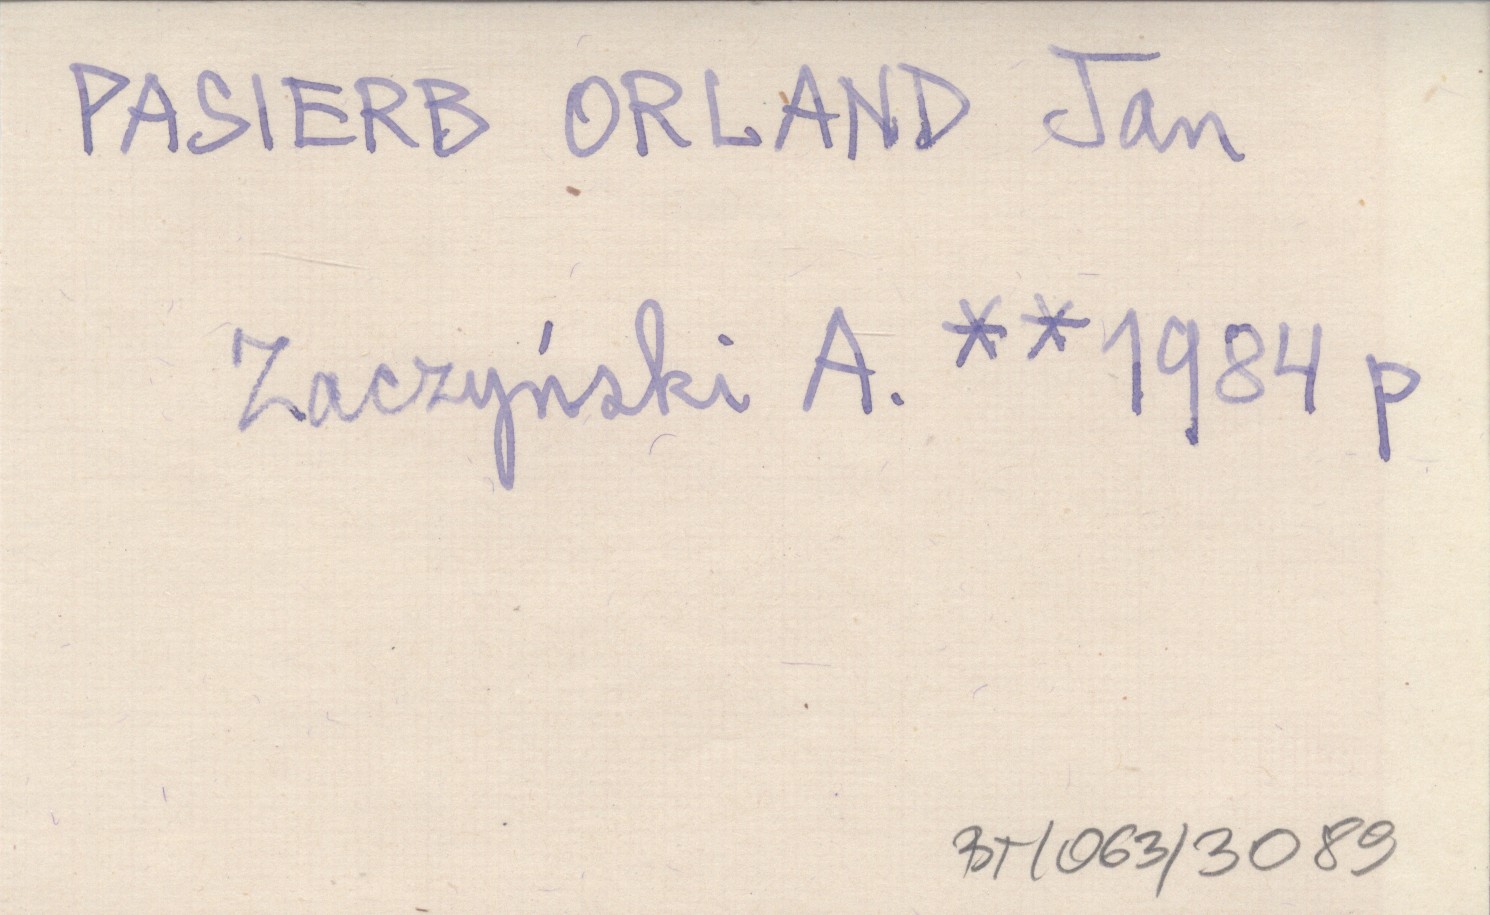 PASIERB ORLAND Jan
Zaczyński A. **1984 p
BT/063/3089